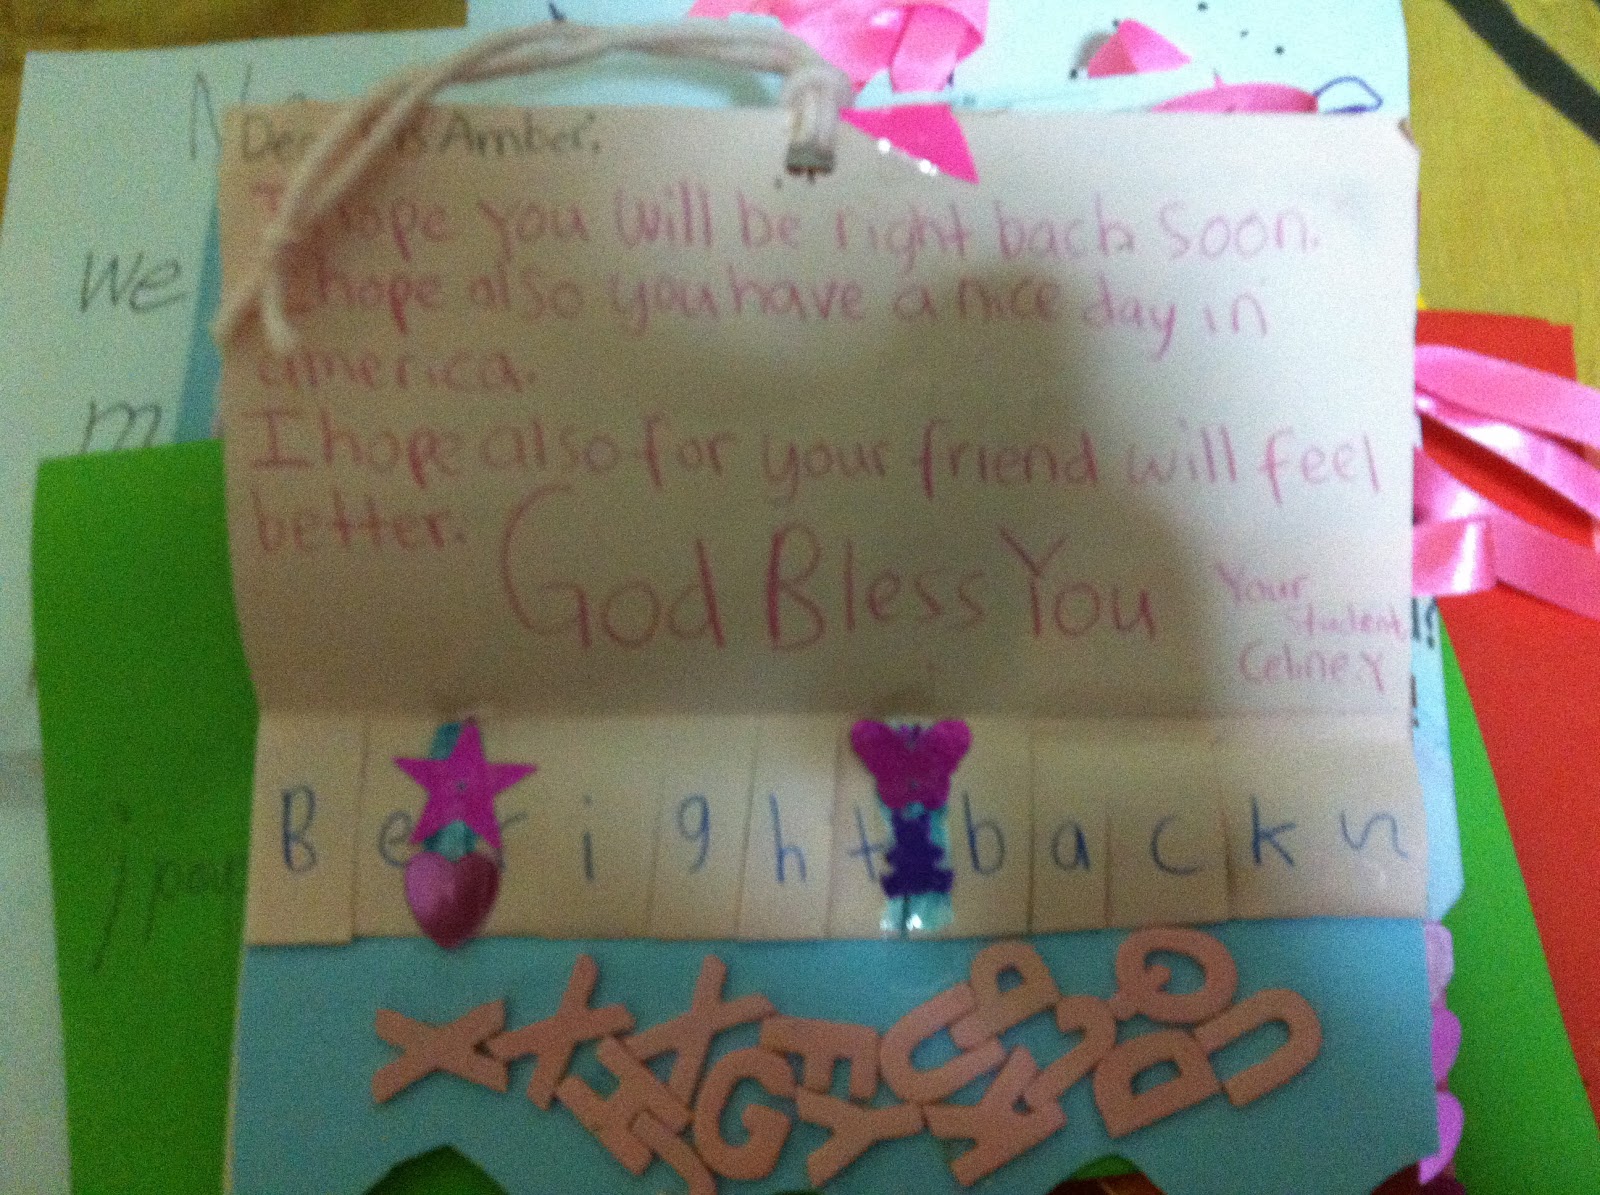 Amber.
hope you will be right back soon.
hope also you have a nice day in
america.
I hope also for your friend will feel
better.
God Bless You
Your
Student,
Celine Y
Be right back
We